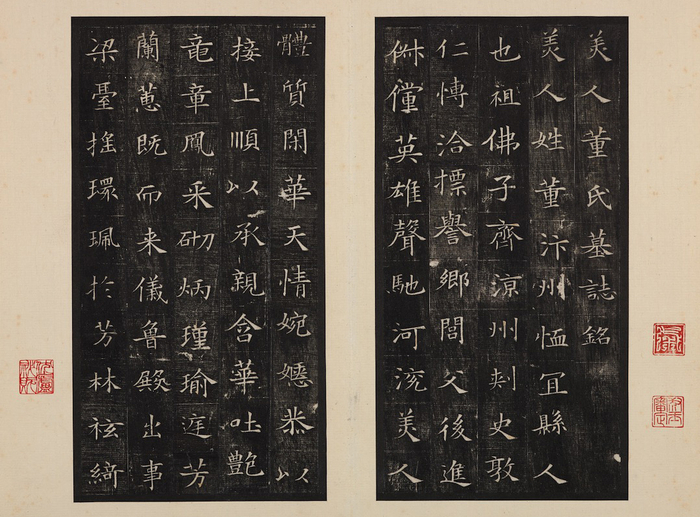 美人董氏墓誌銘
美人姓董汴州恤冝縣人
也祖佛子齊涼州刾史敦
仁博洽摽譽鄉閭父後進
俶儻英雄聲馳河渷美人
體質閑華天情婉嫕恭以
接上順以承親含華吐艷
竜章鳳采砌炳瑾瑜庭芳
蘭蕙既而来儀魯殿出事
梁臺搖環珮於芳林袨綺